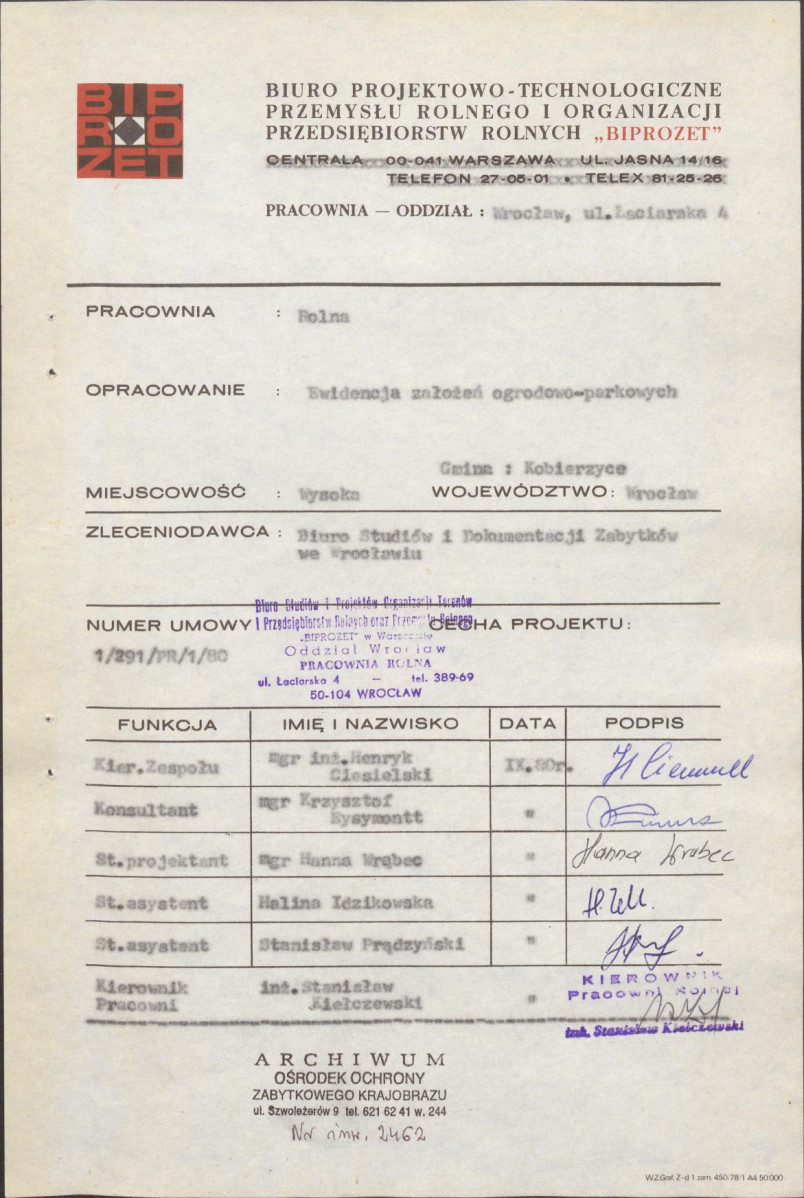 BIP
RO
ZET
BIURO PROJEKTOWO-TECHNOLOGICZNE
PRZEMYSŁU ROLNEGO I ORGANIZACJI
PRZEDSIĘBIORSTW ROLNYCH „BIPROZET”
CENTRALA 00-041 WARSZAWA UL. JASNA 14/16
TELEFON 27-05-01 • TELEX 81-25-26
PRACOWNIA — ODDZIAŁ : Wrocław, ul.Łaciarska 4
PRACOWNIA : Rolna
OPRACOWANIE : Ewidencja założeń ogrodowo-parkowych
Gmina : Kobierzyce
MIEJSCOWOŚĆ : Wysoka WOJEWÓDZTWO: Wrocław
ZLECENIODAWCA : Biuro Studiów i Dokumentacji Zabytków
we Wrocławiu
Biuro Studiów i Projektów Organizacji Terenów
i Przedsiębiorstw Rolnych oraz Przemysłu Rolnego
NUMER UMOWY CECHA PROJEKTU:
„BIPROZET” w Warszawie
Oddział Wrocław
1/291/PR/1/80
PRACOWNIA ROLNA
ul. Łaciarska 4 — tel. 389-69
50-104 WROCŁAW
FUNKCJA IMIĘ I NAZWISKO DATA PODPIS
Kier.Zespołu mgr inż.Henryk Ciesielski IX.80r.
Konsultant mgr Krzysztof Rysymontt "
St.projektant mgr Hanna Wrąbec " Hanna Wrabec
St.asystent Halina Idzikowska "
St.asystent Stanisław Prądzyński "
Kierownik Pracowni inż.Stanisław Kiełczewski "
KIEROWNIK
Pracowni Rolnej
inż. Stanisław Kiełczewski
ARCHIWUM
OŚRODEK OCHRONY
ZABYTKOWEGO KRAJOBRAZU
ul. Szwoleżerów 9 tel. 621 62 41 w. 244
Nr inw. 2462
WZGraf. Z-d 1 zam. 450/78/1 A4 50.000